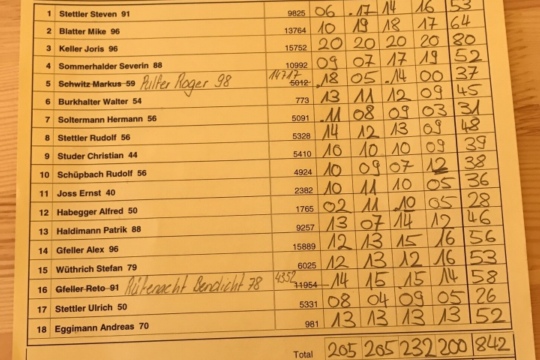 1 Stettler Steven 91 9825 06 .17 14 16 53
2 Blatter Mike 96 13764 10 19 18 17 64
3 Keller Joris 96 15752 20 20 20 20 80
4 Sommerhalder Severin 88 10992 09 07 17 19 52
5 Schwitz Markus 59 Pulfer Roger 98 14717 5012 .18 05 .14 00 37
6 Burkhalter Walter 54 773 13 11 12 09 45
7 Soltermann Hermann 56 5091 .11 08 09 03 31
8 Stettler Rudolf 56 5328 14 12 13 09 48
9 Studer Christian 44 5410 10 10 10 09 39
10 Schüpbach Rudolf 56 4924 10 09 07 12 38
11 Joss Ernst 40 2382 10 11 10 05 36
12 Habegger Alfred 50 1765 02 11 10 05 28
13 Haldimann Patrik 88 9257 13 07 14 12 46
14 Gfeller Alex 96 15889 12 13 15 16 56
15 Wüthrich Stefan 79 6025 12 13 12 16 53
16 Gfeller Reto 91 Rüfenacht Bendicht 78 4352 11954 .14 15 .15 14 58
17 Stettler Ulrich 50 5331 08 04 09 05 26
18 Eggimann Andreas 70 981 13 13 13 13 52
Total 205 205 232 200 842